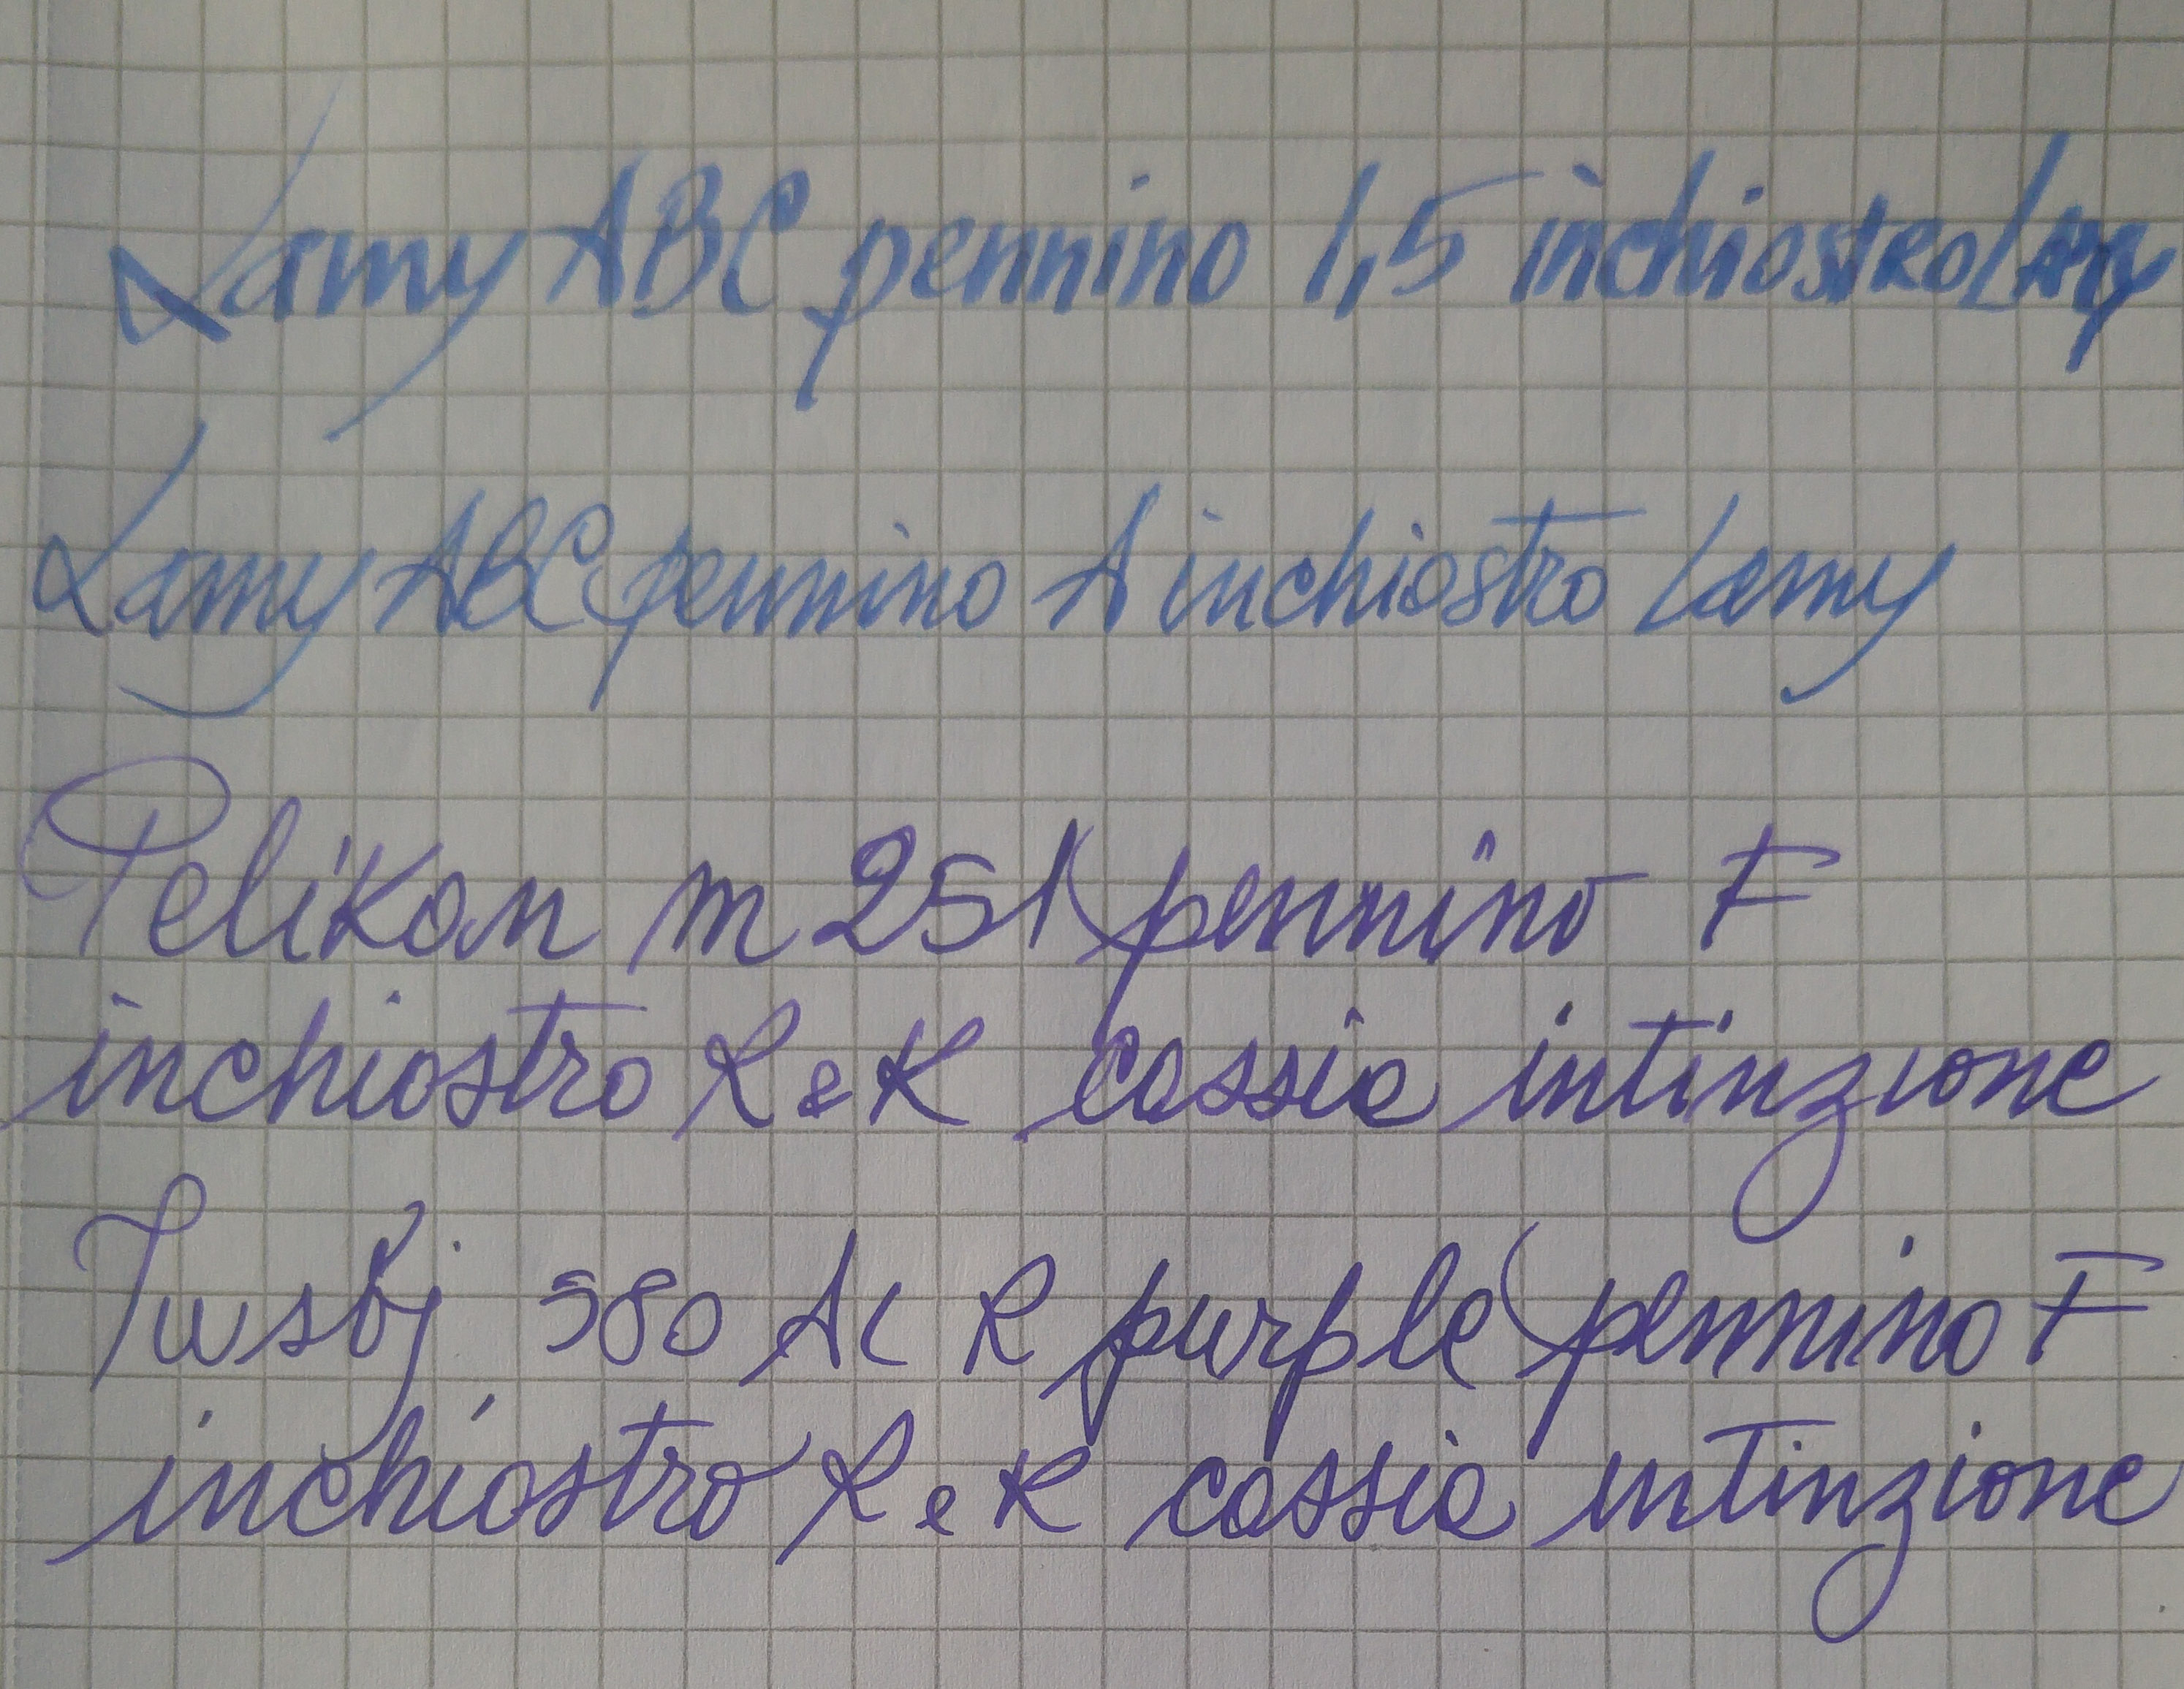 Lamy ABC pennino 1,5 inchiostro Lamy
Lamy ABC pennino A inchiostro Lamy
Pelikan m 251 pennino F
inchiostro R e K cassia intinzione
Twsbj 580 AL R purple pennino F
inchiostro R e K cassia intinzione